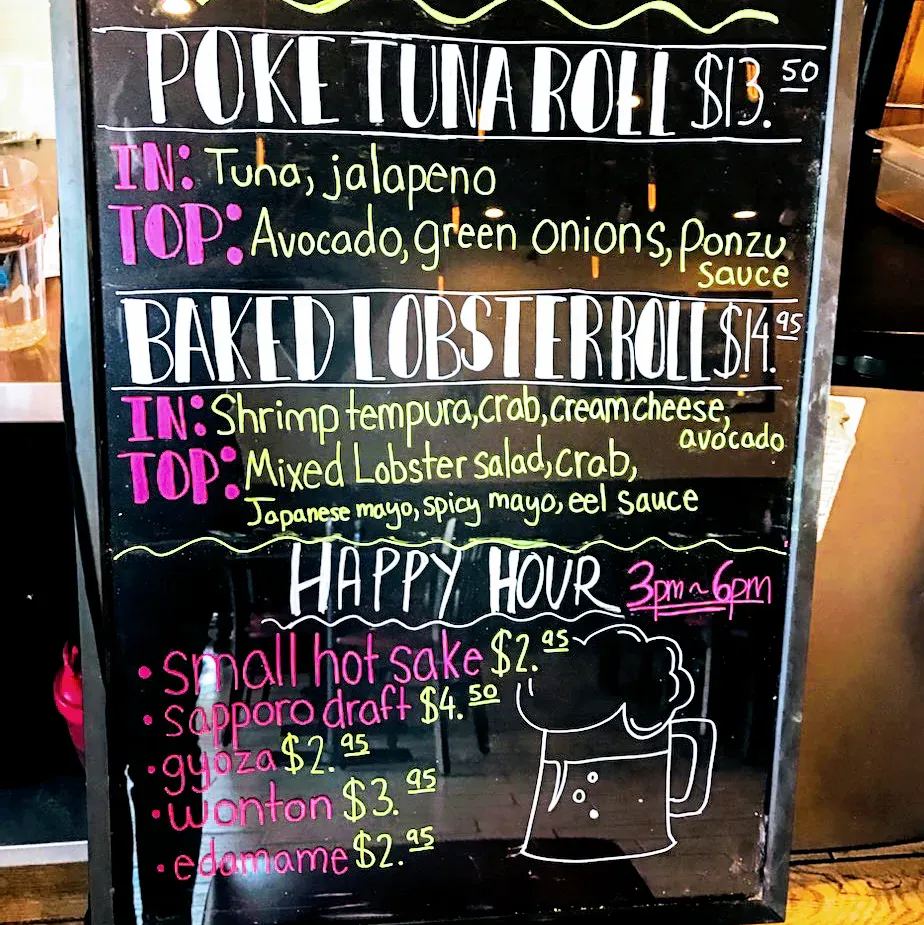 POKE TUNA ROLL $13.50
IN: Tuna, jalapeno
TOP: Avocado, green onions, Ponzu
sauce
BAKED LOBSTER ROLL $14.95
IN: Shrimp tempura, crab, cream cheese,
avocado
TOP: Mixed Lobster salad, crab,
Japanese mayo, spicy mayo, eel sauce
HAPPY HOUR 3pm~6pm
• small hot sake $2.95
• sapporo draft $4.50
• gyoza $2.95
• wonton $3.95
• edamame $2.95